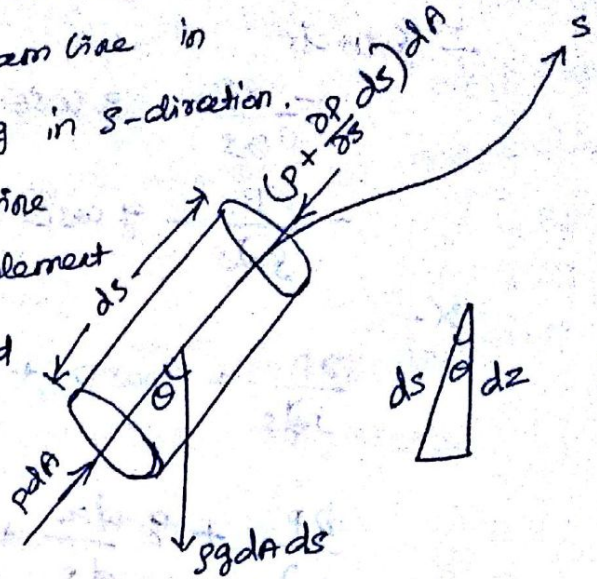 am line in
g in S-direction.
ine
element
d
(P + ∂P/∂s ds) dA
S
ds
θ
pdA
ρgdA ds
ds
θ
dz